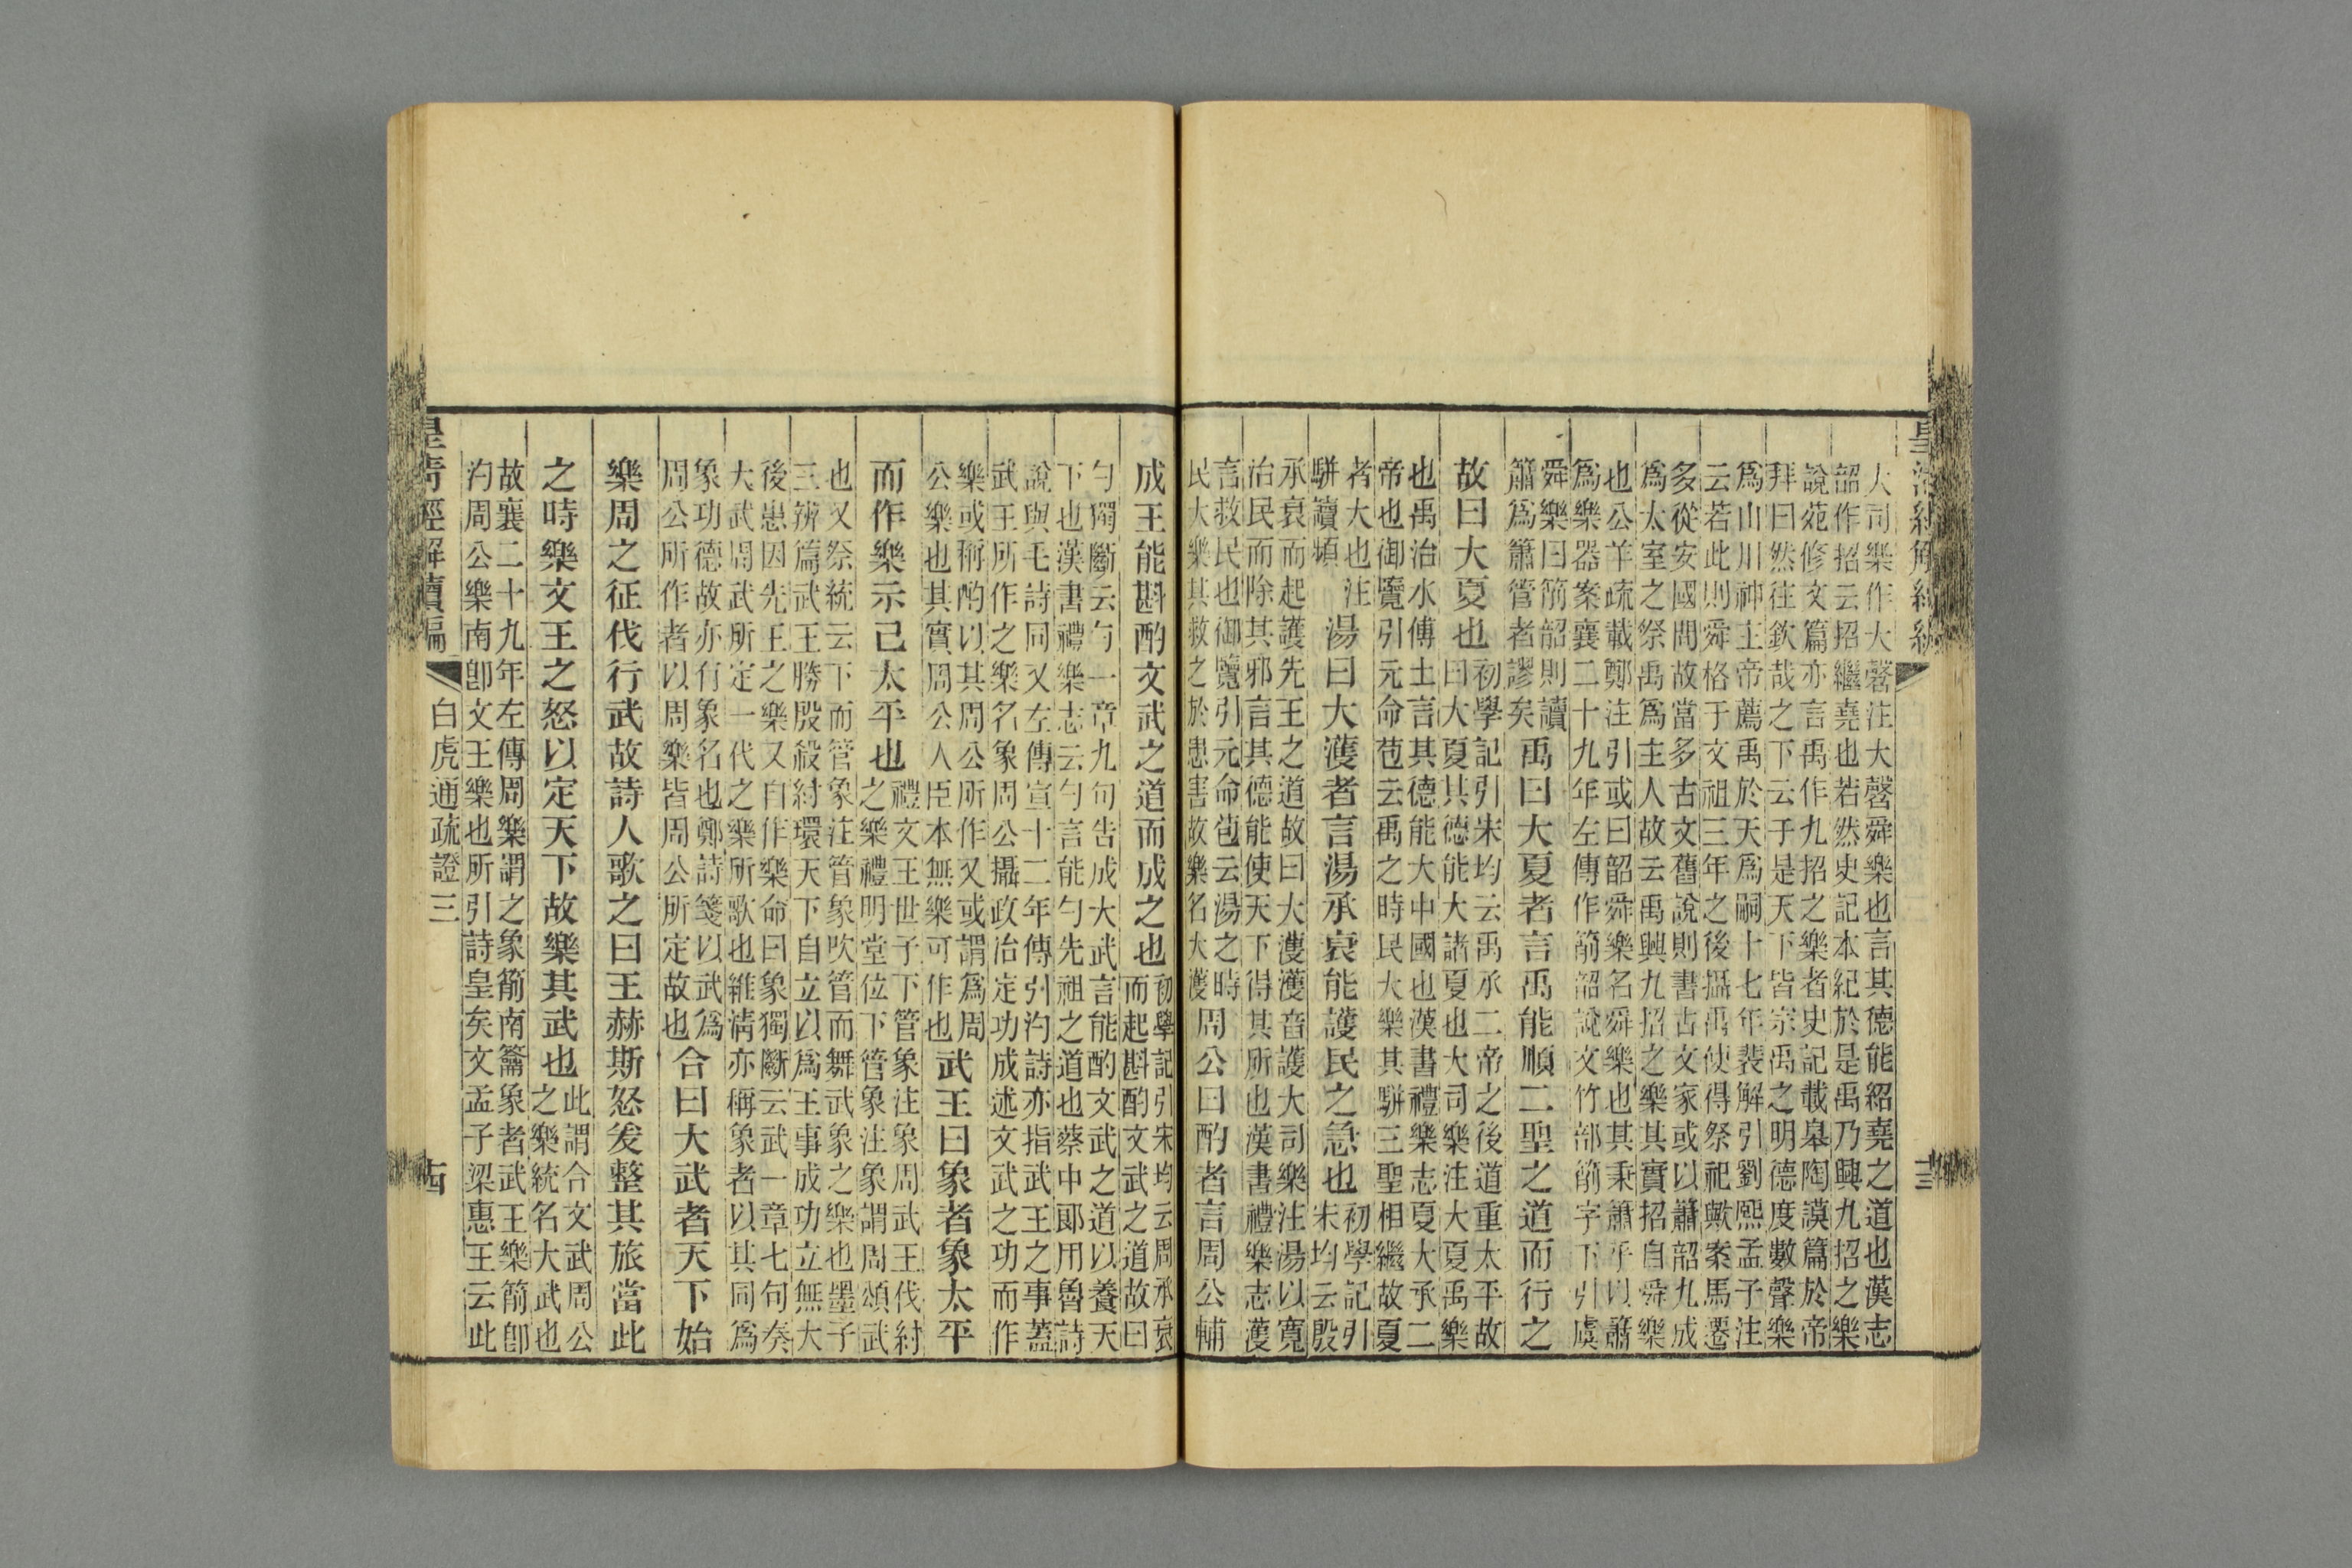 大司樂作大磬注大磬舜樂也言其德能紹堯之道也漢志
韶作招云招繼堯也若然史記本紀於是禹乃興九招之樂
說苑修文篇亦言禹作九招之樂者史記載皋陶謨篇於帝
拜曰然往欽哉之下云于是天下皆宗禹之明德度數聲樂
爲山川神主帝薦禹於天爲嗣十七年裴解引劉熙孟子注
云若此則舜格于文祖三年之後攝禹使得祭祀歟案馬遷
多從安國問故當多古文舊說則書古文家或以簫韶九成
爲太室之祭禹爲主人故云禹興九招之樂其實招自舜樂
也公羊疏載鄭注引或曰韶舜樂名舜樂也其秉簫乎以簫
爲樂器案襄二十九年左傳作箾韶說文竹部箾字下引虞
舜樂曰箾韶則讀
簫爲簫管者謬矣
禹曰大夏者言禹能順二聖之道而行之
故曰大夏也
初學記引宋均云禹承二帝之後道重太平故
曰大夏其德能大諸夏也大司樂注大夏禹樂
也禹治水傅土言其德能大中國也漢書禮樂志夏大承二
帝也御覽引元命苞云禹之時民大樂其駢三聖相繼故夏
者大也注
駢讀頻
湯曰大濩者言湯承衰能護民之急也
初學記引
宋均云殷
承衰而起護先王之道故曰大濩濩音護大司樂注湯以寬
治民而除其邪言其德能使天下得其所也漢書禮樂志濩
言救民也御覽引元命苞云湯之時
民大樂其救之於患害故樂名大濩
周公曰酌者言周公輔
成王能斟酌文武之道而成之也
初學記引宋均云周承衰
而起斟酌文武之道故曰
勺獨斷云勺一章九句告成大武言能酌文武之道以養天
下也漢書禮樂志云勺言能勺先祖之道也蔡中郞用魯詩
說與毛詩同又左傳宣十二年傳引汋詩亦指武王之事蓋
武王所作之樂名象周公攝政治定功成述文武之功而作
樂或稱酌以其周公所作又或謂爲周
公樂也其實周公人臣本無樂可作也
武王曰象者象太平
而作樂示己太平也
禮文王世子下管象注象周武王伐紂
之樂禮明堂位下管象注象謂周頌武
也又祭統云下而管象注管象吹管而舞武象之樂也墨子
三辨篇武王勝殷殺紂環天下自立以爲王事成功立無大
後患因先王之樂又自作樂命曰象獨斷云武一章七句奏
大武周武所定一代之樂所歌也維淸亦稱象者以其同爲
象功德故亦有象名也鄭詩箋以武爲
周公所作者以周樂皆周公所定故也
合曰大武者天下始
樂周之征伐行武故詩人歌之曰王赫斯怒爰整其旅當此
之時樂文王之怒以定天下故樂其武也
此謂合文武周公
之樂統名大武也
故襄二十九年左傳周樂謂之象箾南籥象者武王樂箾卽
汋周公樂南卽文王樂也所引詩皇矣文孟子梁惠王云此
皇淸經解續編
白虎通疏證三